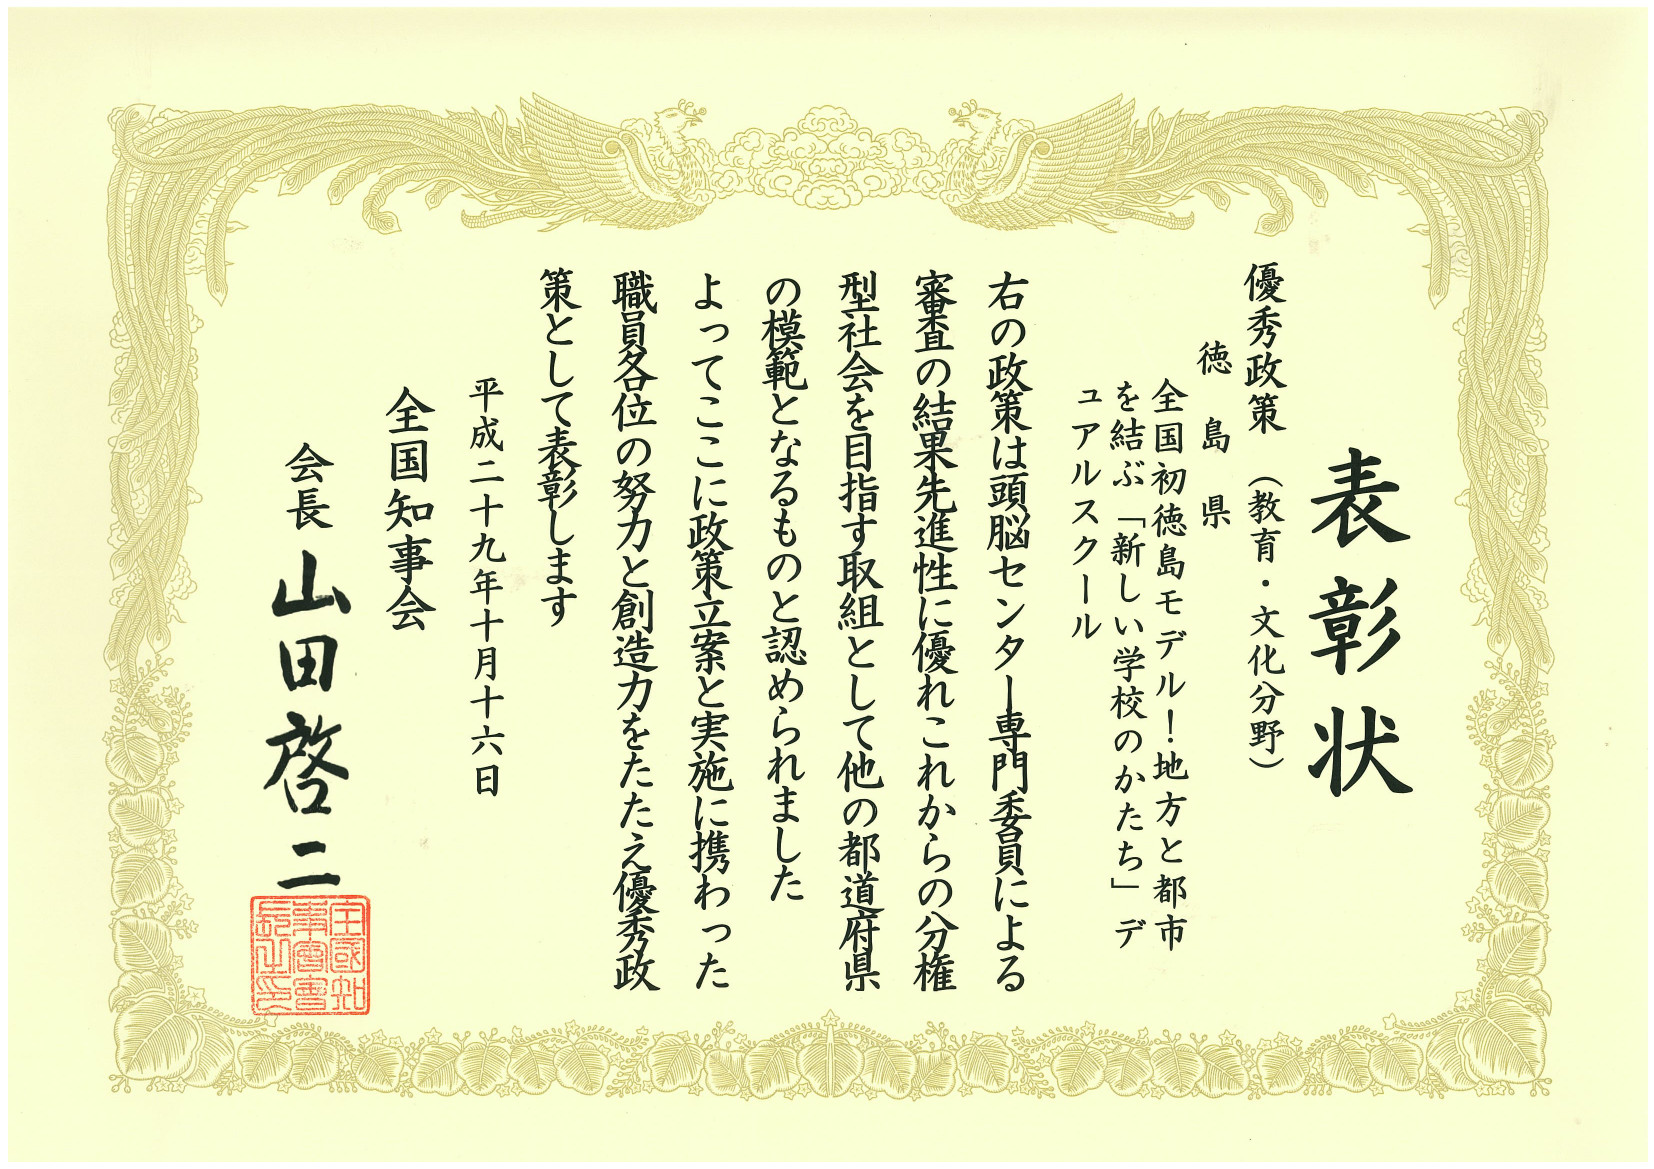 表彰状
優秀政策（教育・文化分野）
徳島県
全国初徳島モデル！地方と都市
を結ぶ「新しい学校のかたち」デ
ュアルスクール
右の政策は頭脳センター専門委員による
審査の結果先進性に優れこれからの分権
型社会を目指す取組として他の都道府県
の模範となるものと認められました
よってここに政策立案と実施に携わった
職員各位の努力と創造力をたたえ優秀政
策として表彰します
平成二十九年十月十六日
全国知事会
会長 山田啓二
全國知
事會會
長之印